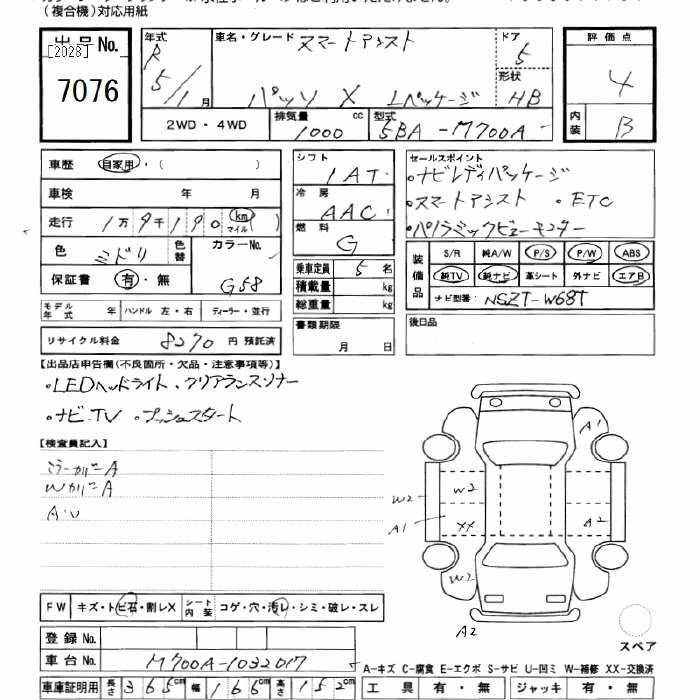 (複合機)対応用紙
出品No.
[2028]
7076
年式
R
5/1月
車名・グレード スマートアシスト
パッソ X Lパッケージ
ドア
5
形状
HB
評価点
4
内装
B
2WD・4WD
排気量 cc
1000
型式
5BA-M700A
車歴 自家用・( )
車検 年 月
走行 1万9千190 km マイル( )
色 ミドリ
色替
カラーNo.
G58
保証書 有・無
シフト
1AT
冷房
AAC
燃料
G
乗車定員 5名
積載量 kg
総重量 kg
書類期限
月 日
セールスポイント
・ナビレディパッケージ
・スマートアシスト ・ETC
・パノラミックビューモニター
装備品
S/R 純A/W P/S P/W ABS
純TV 純ナビ 革シート 外ナビ エアB
ナビ型番: NSZT-W68T
後日品
モデル年式 年 ハンドル 左・右 ディーラー・並行
リサイクル料金 8270 円 預託済
【出品店申告欄(不良箇所・欠品・注意事項等)】
・LEDヘッドライト、クリアランスソナー
・ナビ.TV ・プッシュスタート
【検査員記入】
ミラーカバーA
WカバーA
A.U
A1
W2
W2
A1
XX
A2
W2
A2
スペア
FW キズ・トビ石・割レX シート内装 コゲ・穴・汚レ・シミ・破レ・スレ
登録No.
車台No. M700A-1032017
車庫証明用 長さ 365cm 幅 166cm 高さ 152cm
A-キズ C-腐食 E-エクボ S-サビ U-凹ミ W-補修 XX-交換済
工具 有・無 ジャッキ 有・無